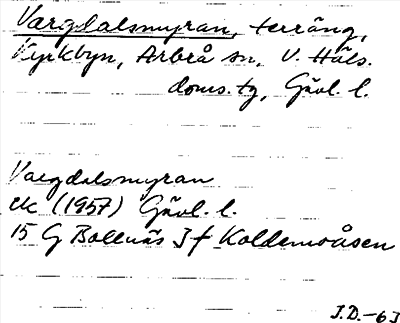 Vargdalsmyran, terräng,
Vyrkbyn, Arbrå sn, V. Häls.
doms. tg, Gävl. l.
Vargdalsmyran
ek (1957) Gävl. l.
15 G Bollnäs 3 f Koldemoåsen
I.D.-63